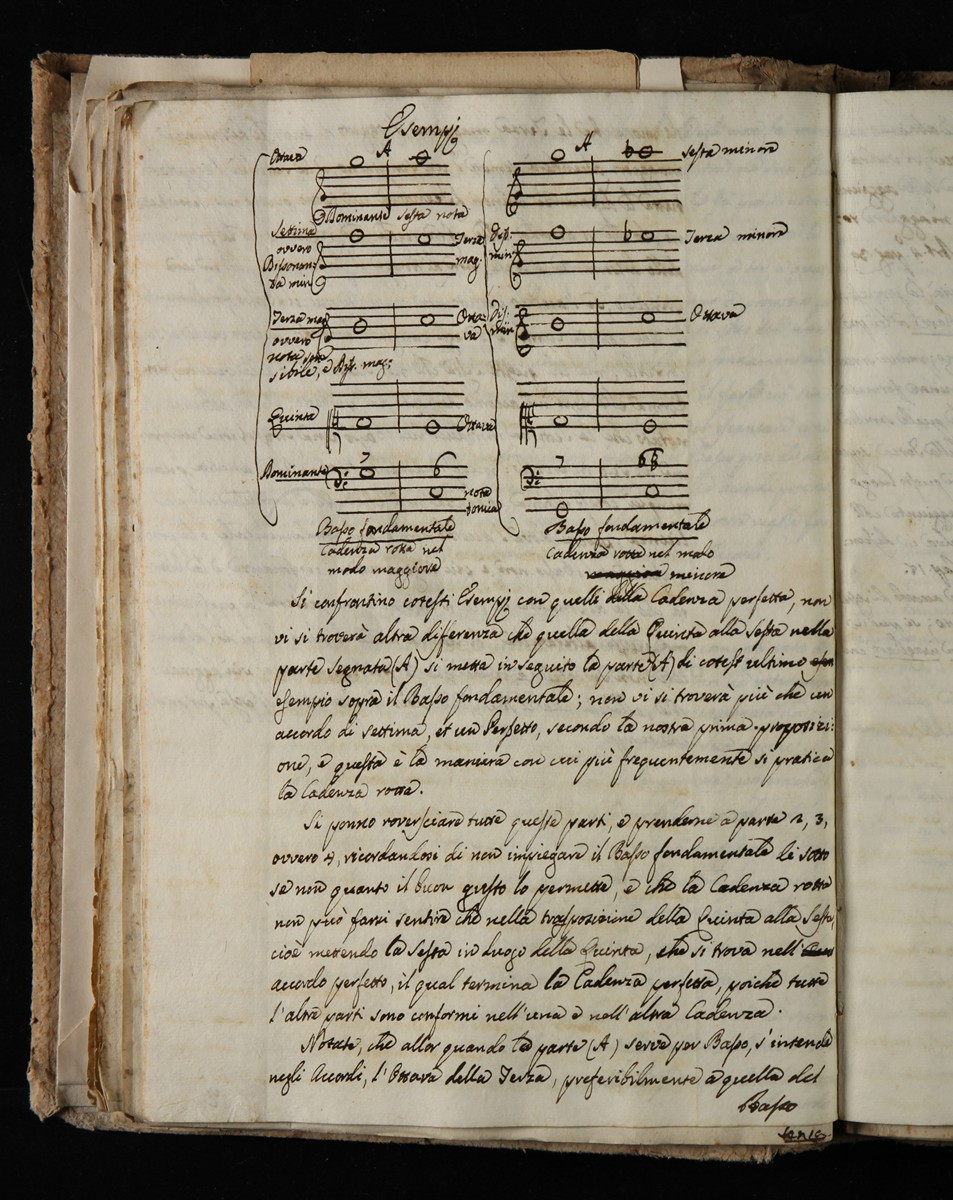 Esempj
Ottava A A Sesta minore
Dominante sesta nota
Settima
ovvero
Dissonan-
za min
Terza
mag.
Dis:
min
Terza minore
Terza mag
ovvero
nota sen-
sibile, e Dis. mag:
Otta-
va
Dis:
Ottava
Quinta Ottava
7 6 7 6
Dominante
nota
tonica
Basso fondamentale Basso fondamentale
Cadenza rotta nel Cadenza rotta nel modo
modo maggiore minore
Si confrontino cotesti Esempj con quelli della Cadenza perfetta, non
vi si troverà altra differenza che quella della Quinta alla sesta nella
parte segnata (A) si metta in seguito la parte (A) di cotest'ultimo
esempio sopra il Basso fondamentale; non vi si troverà più che un
accordo di settima, et un Perfetto, secondo la nostra prima proposizi:
one, e questa è la maniera con cui più frequentemente si pratica
la Cadenza rotta.
Si ponno roversciare tutte queste parti, e prenderne a parte 2, 3,
ovvero 4, ricordandosi di non impiegare il Basso fondamentale li sotto
se non quanto il buon gusto lo permette, e che la Cadenza rotta
non può farsi sentire che nella trasposizione della Quinta alla Sesta,
cioè mettendo la sesta in luogo della Quinta, che si trova nell'
accordo perfetto, il qual termina la Cadenza perfetta, poichè tutte
l'altre parti sono conformi nell'una e nell'altra Cadenza.
Notate, che allor quando la parte (A) serve per Basso, s'intende
negli Accordi, l'Ottava della Terza, preferibilmente a quella del
Basso